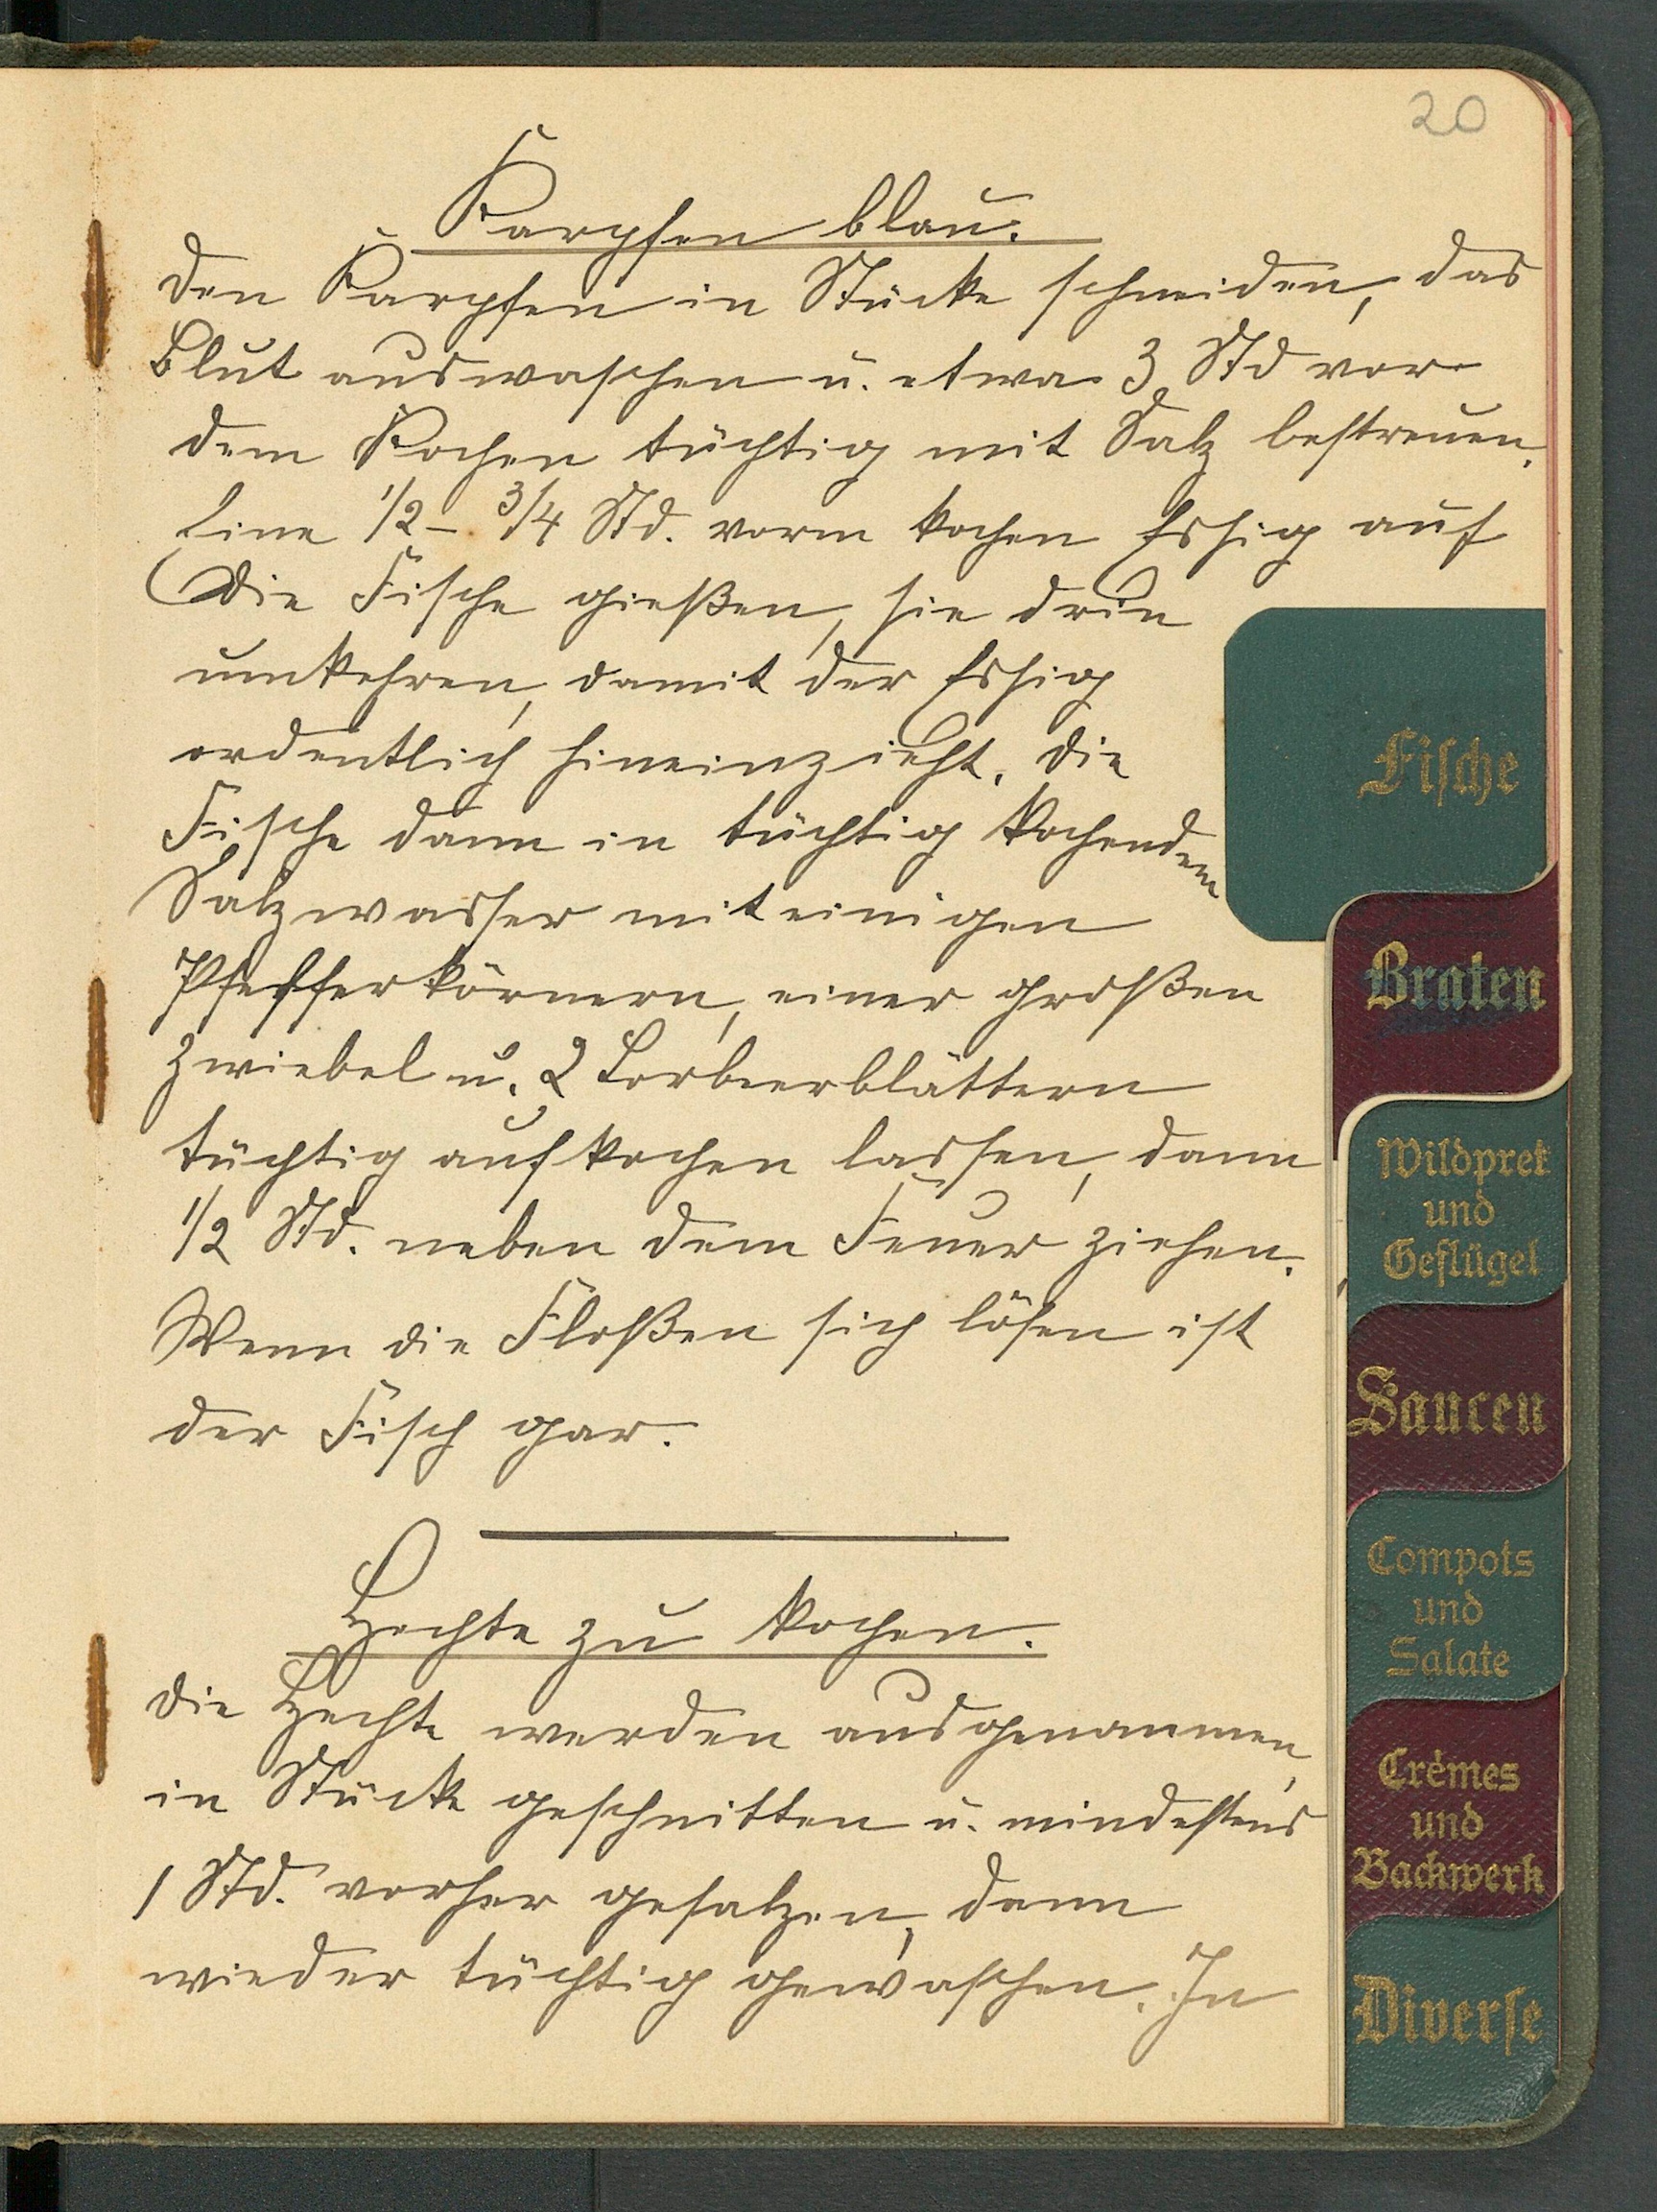 20
Karpfen blau.
Den Karpfen in Stücke schneiden, das
Blut auswaschen u. etwa 3 Std vor
dem Kochen tüchtig mit Salz bestreuen.
Eine 1/2 - 3/4 Std. vorm kochen Essig auf
die Fische gießen, sie drin
umkehren, damit der Essig
ordentlich hineinzieht. Die
Fische dann in tüchtig kochendem
Salzwasser mit einigen
Pfefferkörnern, einer großen
Zwiebel u. 2 Lorbeerblättern
tüchtig aufkochen lassen, dann
1/2 Std. neben dem Feuer ziehen.
Wenn die Floßen sich lösen ist
der Fisch gar.
Hechte zu kochen.
Die Hechte werden ausgenommen,
in Stücke geschnitten u. mindestens
1 Std. vorher gesalzen, dann
wieder tüchtig gewaschen. In
Fische
Braten
Wildpret
und
Geflügel
Saucen
Compots
und
Salate
Crêmes
und
Backwerk
Diverse